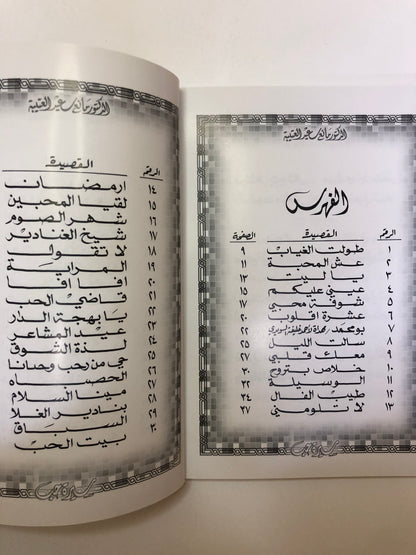 الدكتور مانع سعيد العتيبة
الفهرس
الرقم القصيدة الصفحة
١ طولت الغياب ٩
٢ عش المحبة ١١
٣ يا ليت ١٣
٤ عيني عليكم ١٥
٥ شوفة محبي ١٧
٦ عشرة اقلوب ٢٠
٧ بومحمد ٢٢
٨ سالت الليل ٢٥
٩ معاك قلبي ٢٧
١٠ خلاص بتروح ٣٠
١١ الوسيلة ٣٢
١٢ طيب الفال ٣٤
١٣ لا تلومني ٣٧
الدكتور مانع سعيد العتيبة
الرقم القصيدة
١٤ ارمضان
١٥ لقيا المحبين
١٦ شهر الصوم
١٧ شيخ الغنادير
١٨ لا تقول
١٩ المراية
٢٠ افا افا
٢١ قاضي الحب
٢٢ يا بهجة الدار
٢٣ عيد المشاعر
٢٤ لذة الشوق
٢٥ حي من رحب وحنانا
٢٧ الحصاه
٢٨ مينا السلام
٢٩ بنادير الغلا
٣٠ السباق
بيت الحب